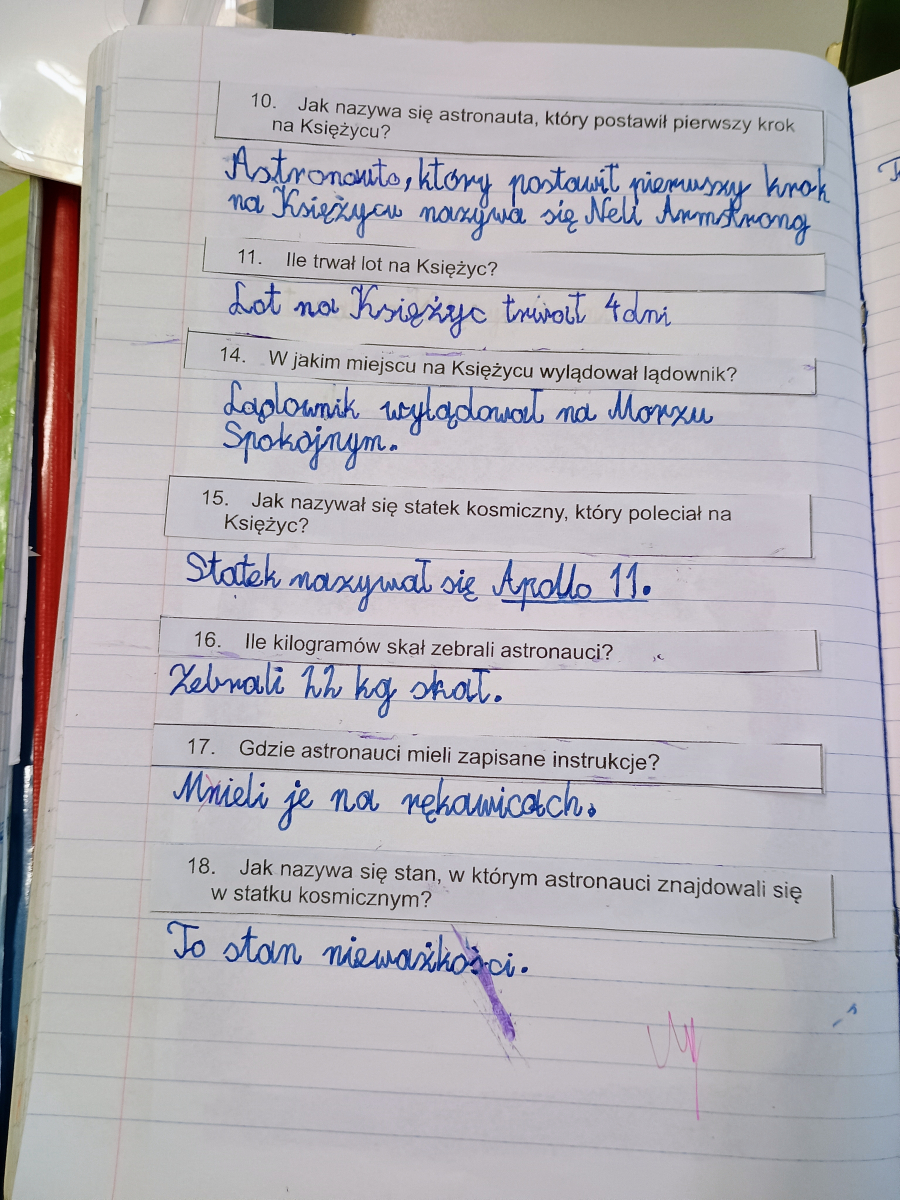 10. Jak nazywa się astronauta, który postawił pierwszy krok
na Księżycu?
Astronauta, który postawił pierwszy krok
na Księżycu nazywa się Neli Armstrong
11. Ile trwał lot na Księżyc?
Lot na Księżyc trwał 4 dni
14. W jakim miejscu na Księżycu wylądował lądownik?
Lądownik wylądował na Morzu
Spokojnym.
15. Jak nazywał się statek kosmiczny, który poleciał na
Księżyc?
Statek nazywał się Apollo 11.
16. Ile kilogramów skał zebrali astronauci?
Zebrali 22 kg skał.
17. Gdzie astronauci mieli zapisane instrukcje?
Mieli je na rękawicach.
18. Jak nazywa się stan, w którym astronauci znajdowali się
w statku kosmicznym?
To stan nieważkości.